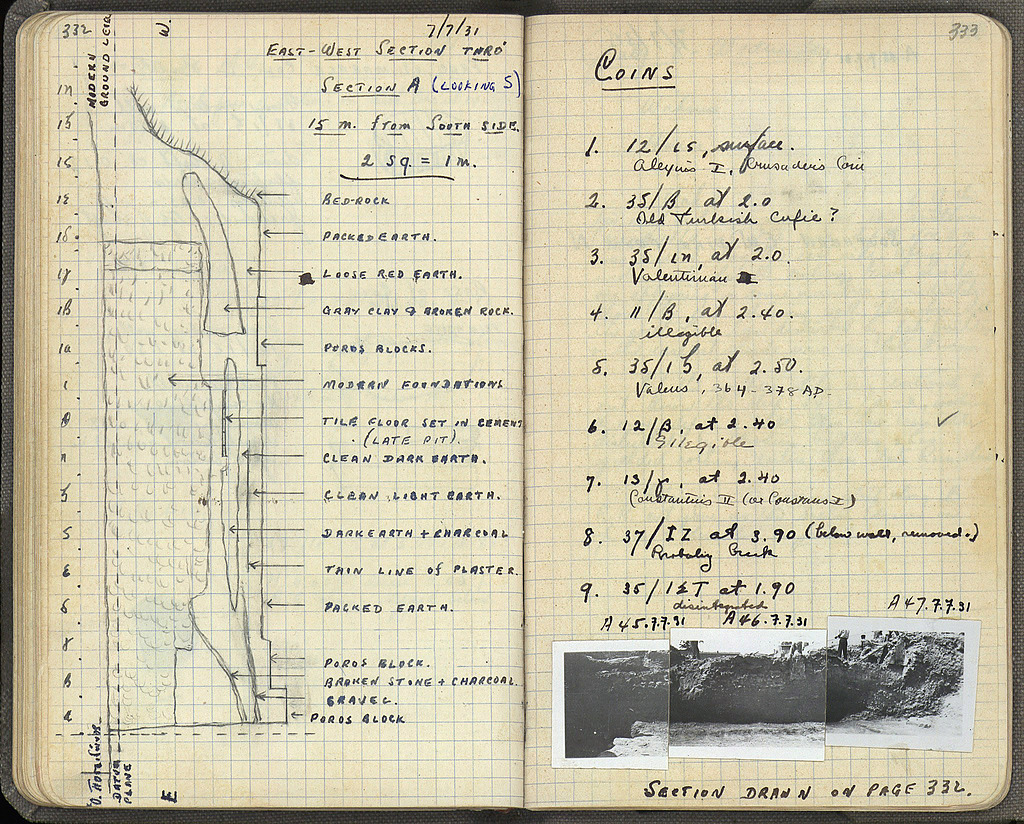 332
7/7/31
W.
MODERN
GROUND LEVEL
EAST-WEST SECTION THRO'
SECTION A (LOOKING S)
15 m. from SOUTH SIDE.
2 SQ. = 1 m.
BED-ROCK
PACKED EARTH.
LOOSE RED EARTH.
GRAY CLAY & BROKEN ROCK.
POROS BLOCKS.
MODERN FOUNDATIONS
TILE FLOOR SET IN CEMENT
(LATE PIT).
CLEAN DARK EARTH.
CLEAN LIGHT EARTH.
DARK EARTH + CHARCOAL
THIN LINE OF PLASTER.
PACKED EARTH.
POROS BLOCK.
BROKEN STONE + CHARCOAL.
GRAVEL.
POROS BLOCK
DATUM
PLANE
E
333
COINS
1. 12/ιε, surface.
Alexius I, Crusader's Coin
2. 35/β, at 2.0
Old Turkish Cufic?
3. 35/ιη, at 2.0.
Valentinian
4. 11/β, at 2.40.
illegible
5. 35/ιζ, at 2.50.
Valens, 364-378 AD.
6. 12/β, at 2.40
Illegible
7. 13/γ, at 2.40
Constantius II (or Constans I)
8. 37/ΙΖ at 3.90 (below wall, removed.)
Probably Greek
9. 35/ at 1.90
disintegrated
A 45.7.7.31 A 46.7.7.31 A 47.7.7.31
SECTION DRAWN ON PAGE 332.